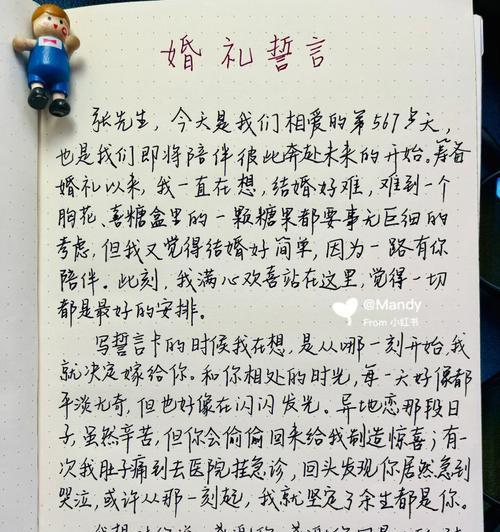 婚礼誓言
张先生，今天是我们相爱的第567点天，
也是我们即将陪伴彼此奔赴未来的开始。筹备
婚礼以来，我一直在想，结婚好难，难到一个
胸花、喜糖盒里的一颗糖果都要事无巨细的
考虑，但我又觉得结婚好简单，因为一路有你
陪伴。此刻，我满心欢喜站在这里，觉得一切
都是最好的安排。
@Mandy
From 小红书
写誓言卡的时候我在想，是从哪一刻开始，我
就决定嫁给你。和你相处的时光，每一天好像都
平淡无奇，但也好像在闪闪发光。异地恋那段日
子，虽然辛苦，但你会偷偷回来给我制造惊喜；有一
次我肚子痛到去医院挂急诊，回头发现你居然急到
哭泣，或许从那一刻起，我就坚定了余生都是你。